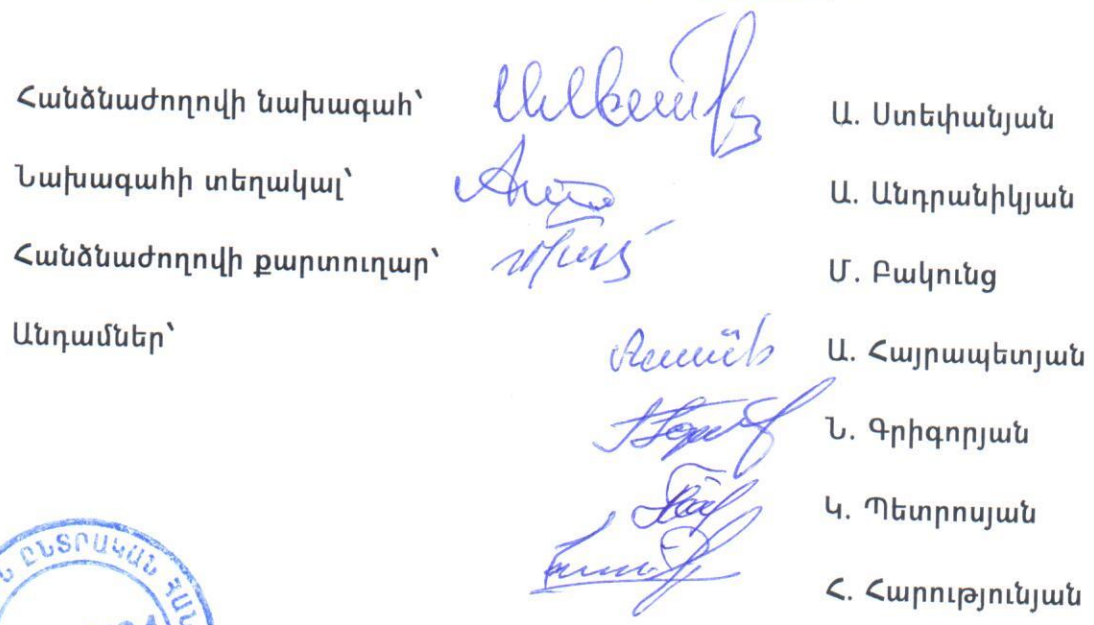 Հանձնաժողովի նախագահ՝ Ա. Ստեփանյան
Նախագահի տեղակալ՝ Ա. Անդրանիկյան
Հանձնաժողովի քարտուղար՝ Մ. Բակունց
Անդամներ՝ Ա. Հայրապետյան
Ն. Գրիգորյան
Կ. Պետրոսյան
Հ. Հարությունյան
ԸՆՏՐԱԿԱՆ ՀԱՆ